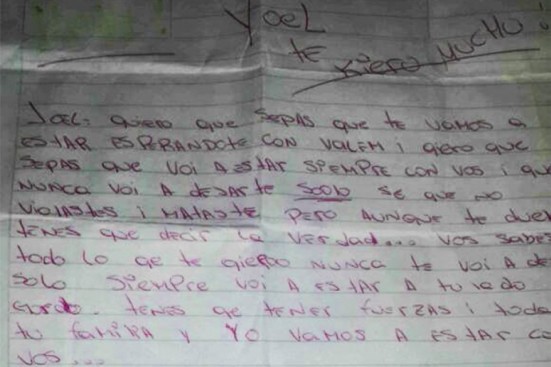 Yoel
te kiero mucho!
Yoel: quiero que sepas que te vamos a
estar esperandote con Valem i qiero que
sepas que voi a estar siempre con vos i que
nunca voi a dejarte solo se que no
violastes i mataste pero aunque te duela
tenes que decir la verdad... vos sabes
todo lo qe te qiero nunca te voi a de
solo siempre voi a estar a tu lado
gordo. tenes qe tener fuerzas i toda
tu familia y yo vamos a estar co
vos...